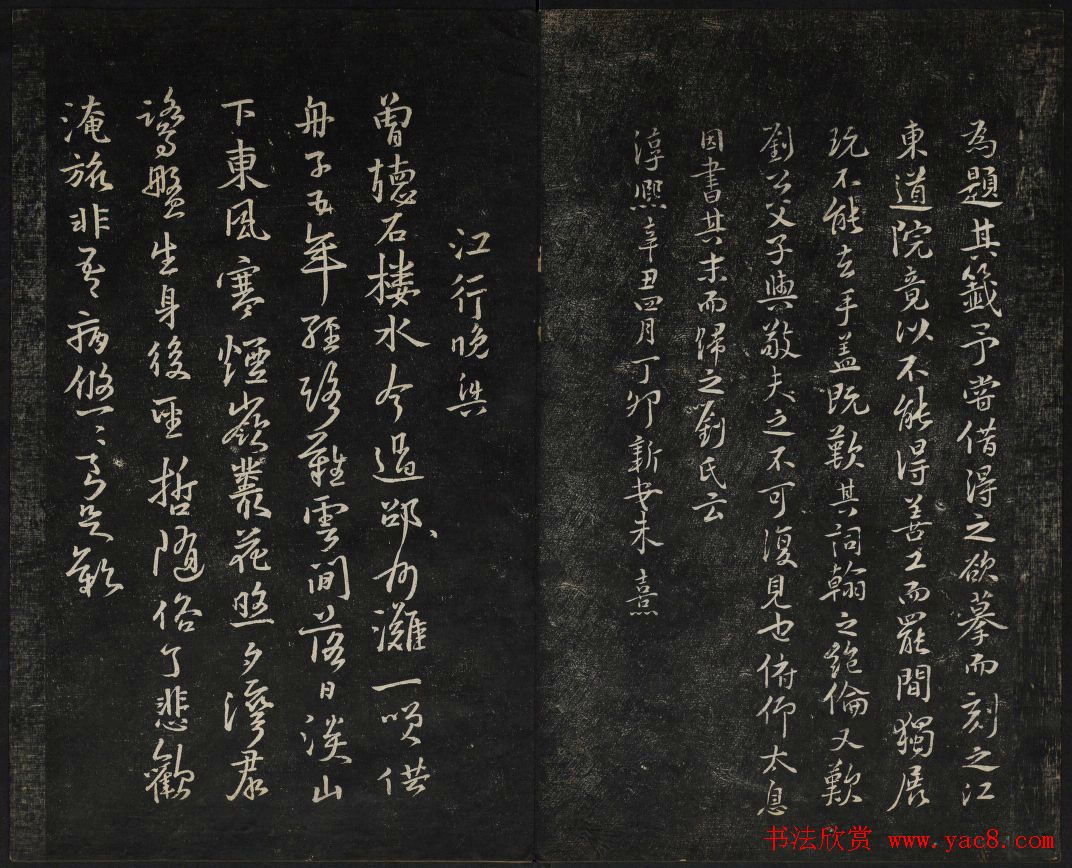 為題其籤予嘗借得之欲摹而刻之江
東道院竟以不能得善工而罷間獨展
玩不能去手盖既歎其詞翰之絶倫又歎
劉公父子與敬夫之不可復見也俯仰太息
因書其末而歸之劉氏云
淳熙辛丑四月丁卯新安朱熹
江行晚興
曾聴石楼水今過邵州灘一咲供
舟子五年經路難雲間落日淡山
下東風寒煙嶺叢花照夕灣群
鷺盤生身後聖哲隨俗了悲歡
淹旅非吾病悠〻良足歎
书法欣赏 www.yac8.com